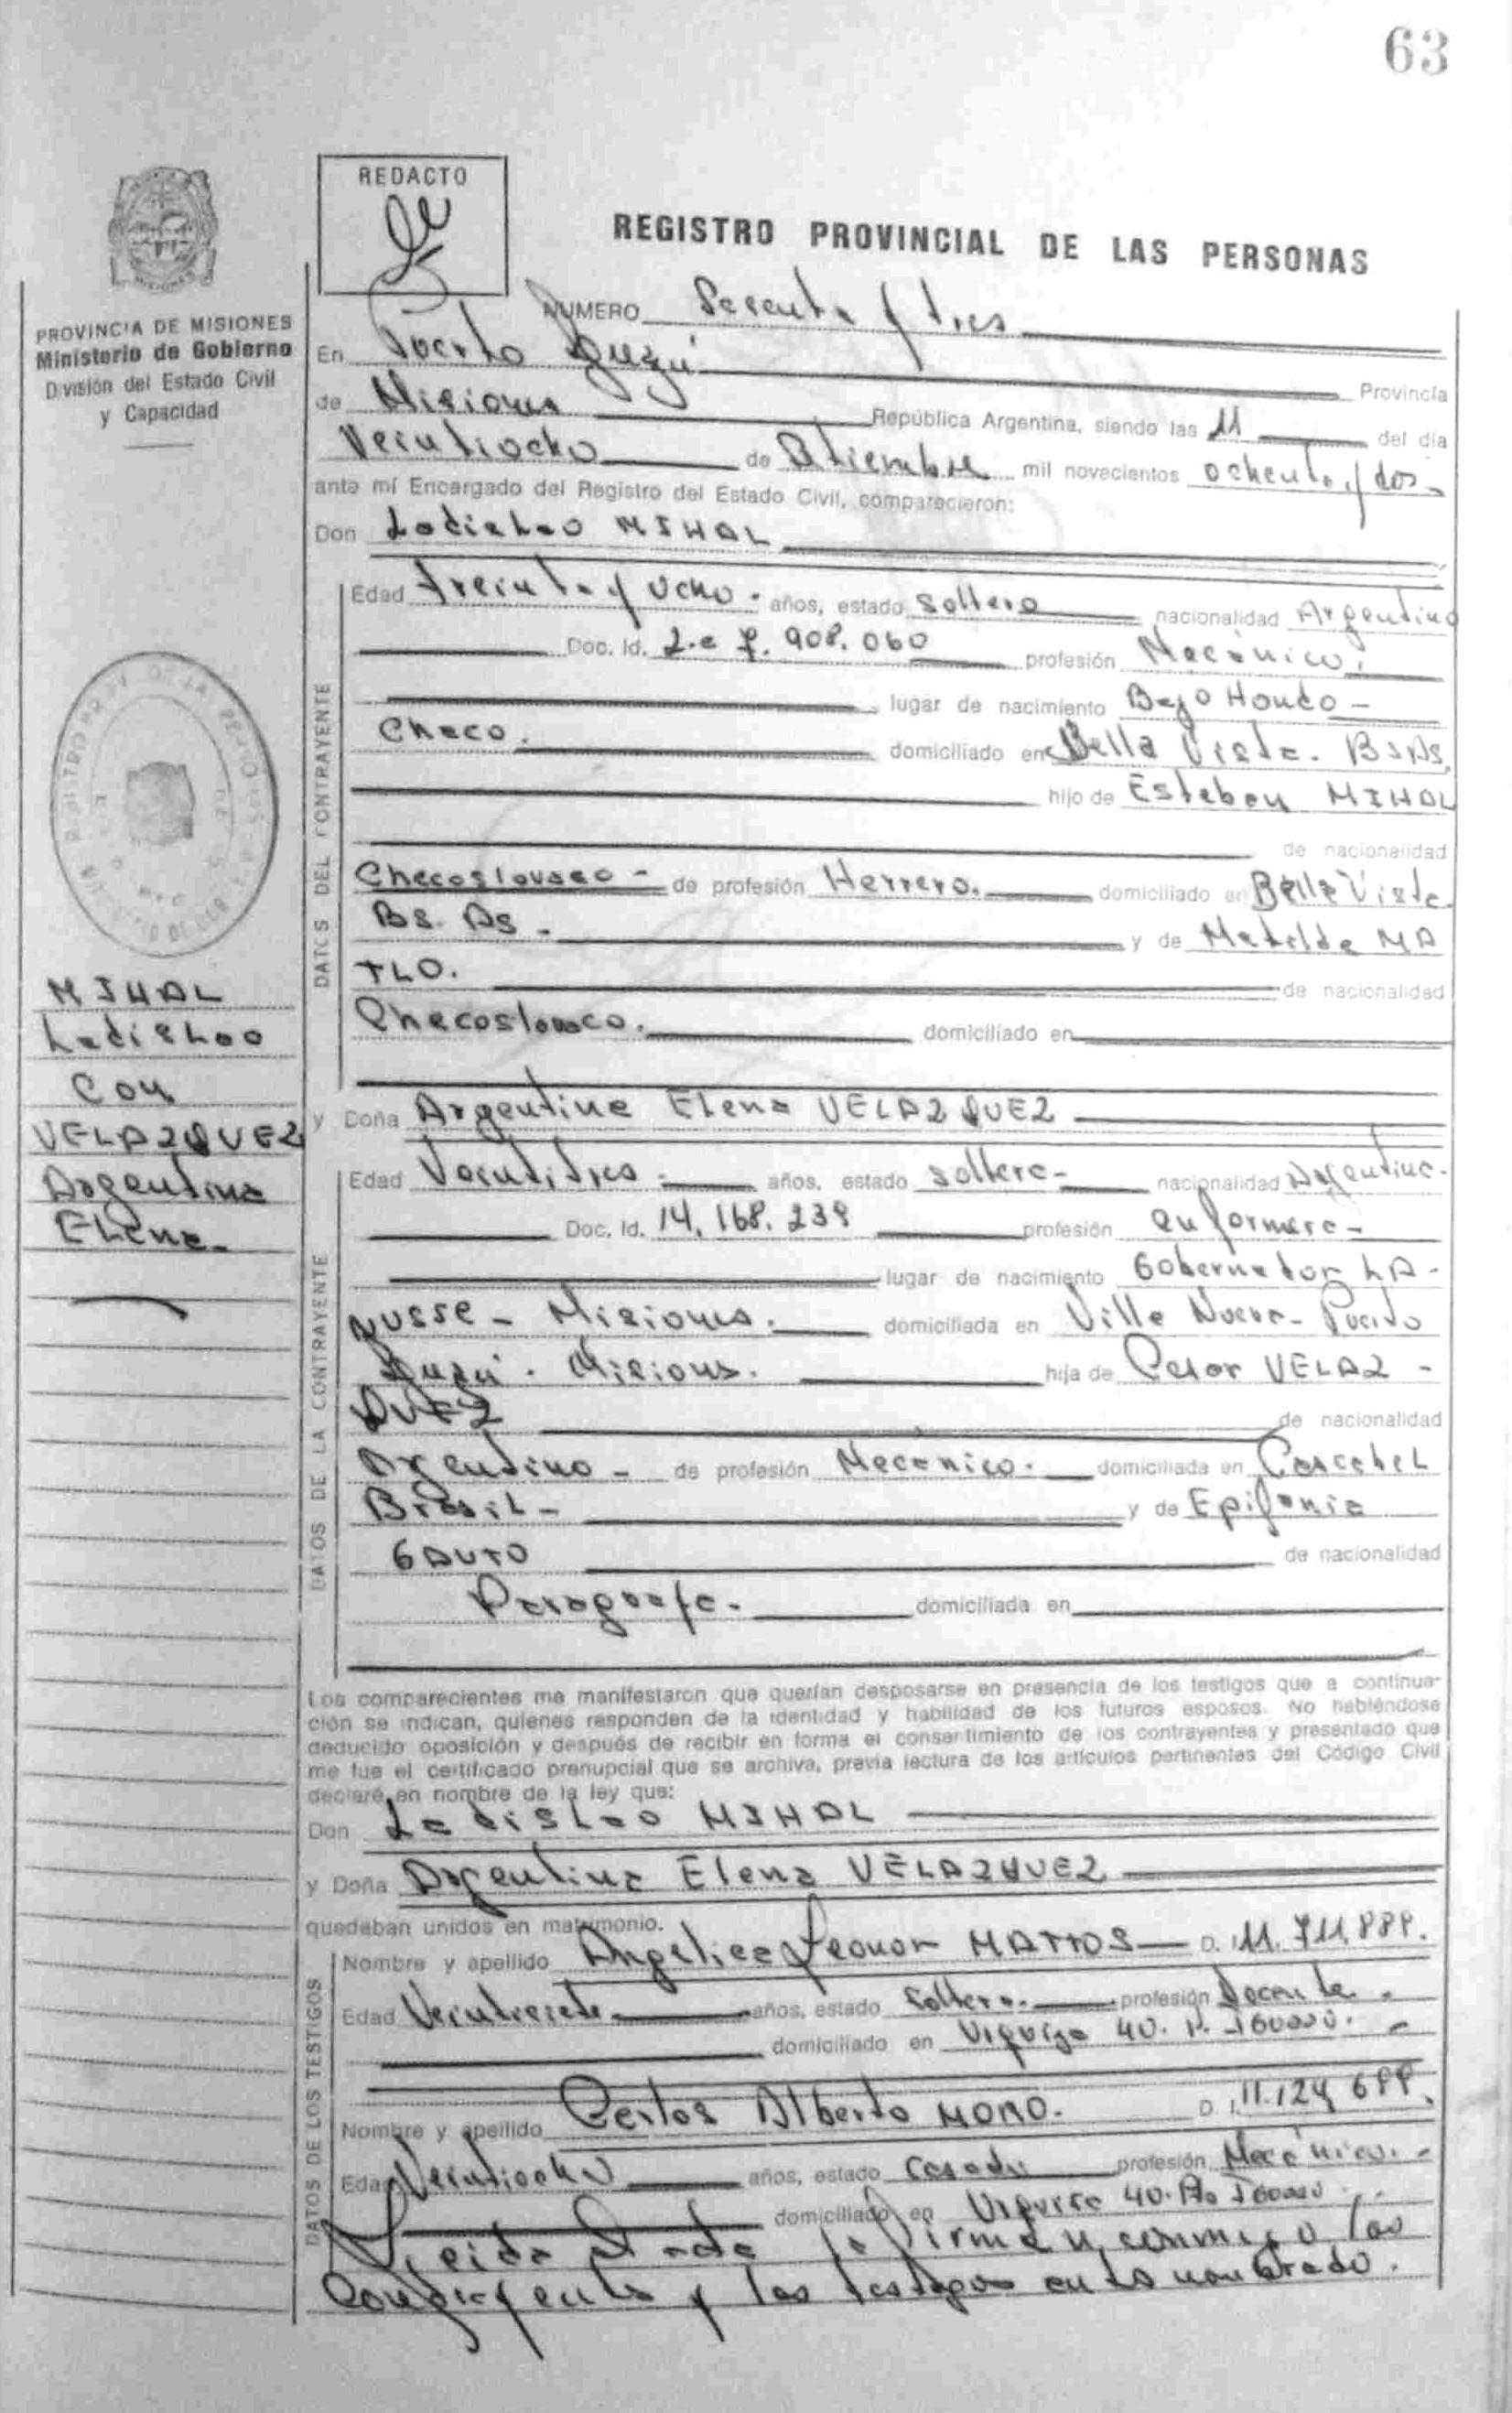 63
REDACTO
REGISTRO PROVINCIAL DE LAS PERSONAS
PROVINCIA DE MISIONES
Ministerio de Gobierno
División del Estado Civil
y Capacidad
NUMERO Sesenta y tres
En Puerto Iguazú Provincia
de Misiones República Argentina, siendo las 11 del día
Veintiocho de mil novecientos ochenta y dos
ante mí Encargado del Registro del Estado Civil, comparecieron:
Don Ladislao MIHAL
DATOS DEL CONTRAYENTE
Edad Treinta y ocho años, estado soltero nacionalidad Argentino
Doc. Id. L.e 7.908.060 profesión Mecánico.
lugar de nacimiento Bajo Hondo -
Chaco. domiciliado en Bella Vista. Bs As.
hijo de Esteban MIHAL
de nacionalidad
Checoslovaco - de profesión Herrero. domiciliado en Bella Vista.
Bs. As - y de Matilde MA
TLO. de nacionalidad
Checoslovaca. domiciliado en
MIHAL
Ladislao
Con
VELAZQUEZ
Argentina
Elena
y Doña Argentina Elena VELAZQUEZ
DATOS DE LA CONTRAYENTE
Edad Veintitres años, estado soltera - nacionalidad Argentina -
Doc. Id. 14.168.239 profesión enfermera -
lugar de nacimiento Gobernador LA -
NUSSE - Misiones. domiciliada en Villa Nueva - Puerto
Iguazú - Misiones. hija de Cesar VELAZ -
QUEZ de nacionalidad
Argentino - de profesión Mecánico. domiciliada en Cascabel
Brasil - y de Epifania
GAUTO de nacionalidad
Paraguaya - domiciliada en
Los comparecientes me manifestaron que querían desposarse en presencia de los testigos que a continua-
ción se indican, quienes responden de la identidad y habilidad de los futuros esposos. No habiéndose
deducido oposición y después de recibir en forma el consentimiento de los contrayentes y presentado que
me fue el certificado prenupcial que se archiva, previa lectura de los artículos pertinentes del Código Civil
declaré en nombre de la ley que:
Don Ladislao MIHAL
y Doña Argentina Elena VELAZQUEZ
quedaban unidos en matrimonio.
DATOS DE LOS TESTIGOS
Nombre y apellido Angelica Leonor MATTOS - D. 11.711.888.
Edad Veintisiete años, estado Soltera. profesión Docente.
domiciliado en 40.
Nombre y apellido Carlos Alberto MORO. D I. 11.124 688.
Edad Veintiocho años, estado Casado profesión Mecánico. -
domiciliado en 40.
Leida el acta la firman conmigo los
contrayentes y los testigos en lo nombrado.